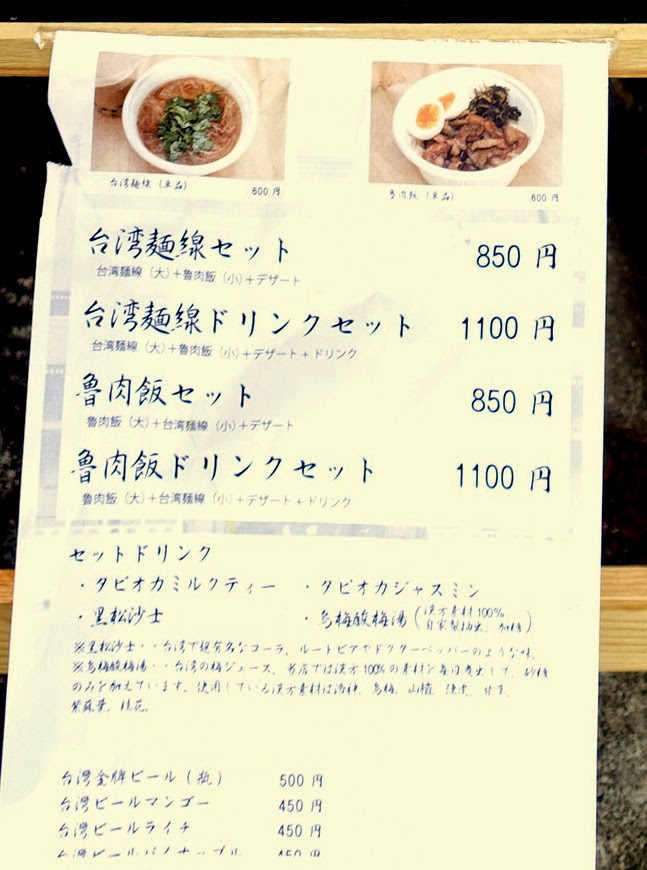 台湾麺線(単品) 600 円
魯肉飯(単品) 600 円
台湾麺線セット 850 円
台湾麺線(大)+魯肉飯(小)+デザート
台湾麺線ドリンクセット 1100 円
台湾麺線(大)+魯肉飯(小)+デザート+ドリンク
魯肉飯セット 850 円
魯肉飯(大)+台湾麺線(小)+デザート
魯肉飯ドリンクセット 1100 円
魯肉飯(大)+台湾麺線(小)+デザート+ドリンク
セットドリンク
・タピオカミルクティー ・タピオカジャスミン
・黒松沙士 ・烏梅酸梅湯(漢方素材100% 自家製抽出、加糖)
※黒松沙士・・台湾で超有名なコーラ。ルートビアやドクターペッパーのような味。
※烏梅酸梅湯・・台湾の梅ジュース。当店では漢方100%の素材を毎日煮出して、砂糖
のみを加えています。使用している漢方素材は洛神、烏梅、山楂、陳皮、甘草、
紫蘇葉、桂花。
台灣金牌ビール(瓶) 500 円
台灣ビールマンゴー 450 円
台灣ビールライチ 450 円
台灣ビールパイナップル 450 円